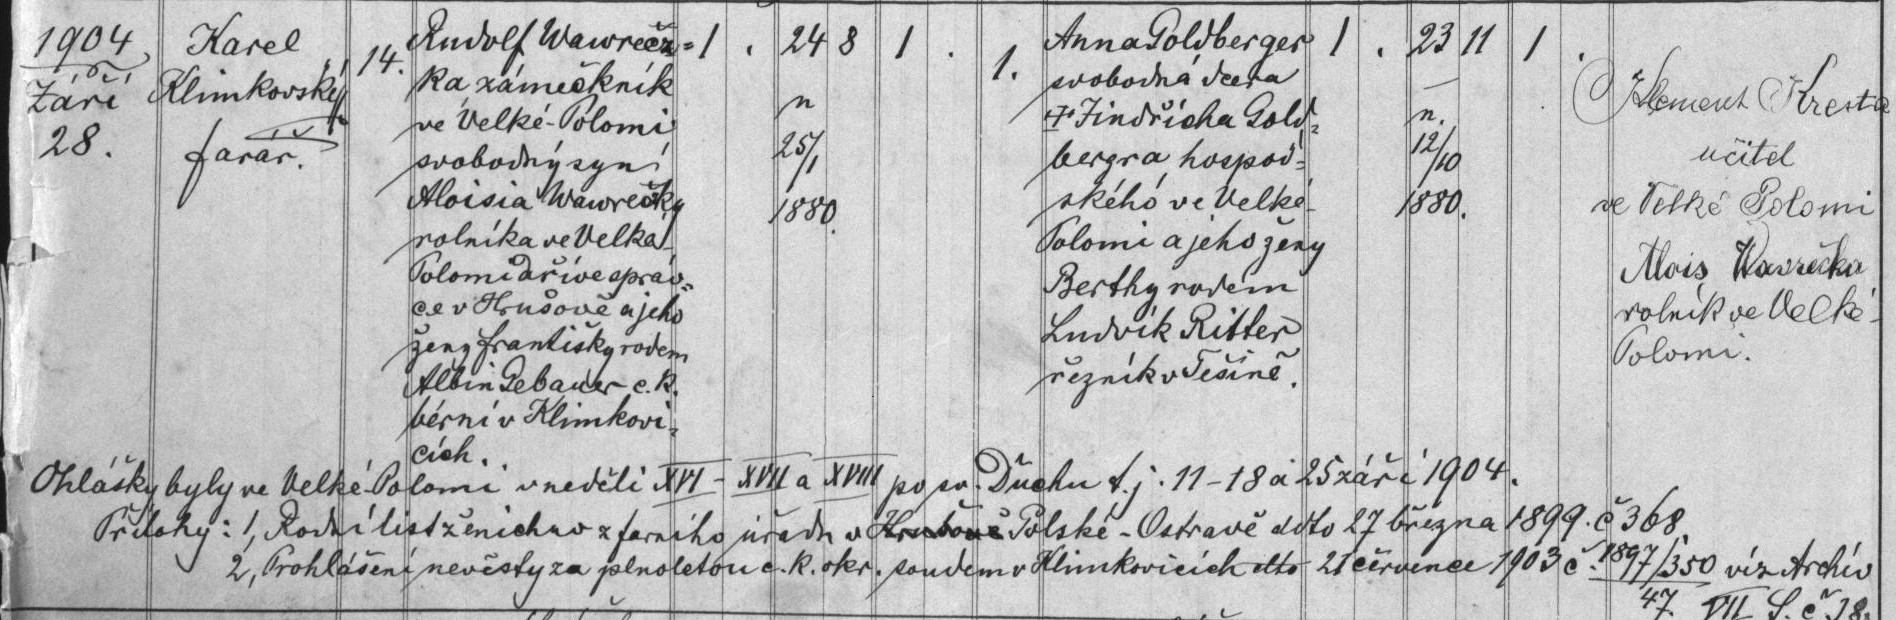 1904
Září
28.
Karel
Klimkovský
farář.
14.
Rudolf Wawrečz=
ka zámečkník
ve Velké-Polomi
svobodný syn
Aloisia Wawrečky
rolníka ve Velké
Polomi dříve správ=
ce v Hrušově a jeho
ženy Františky rodem
Albin Gebauer c.k.
bérní v Klimkovi=
cích.
1 . 24 8 1 .
n
25/1
1880.
1.
Anna Goldberger
svobodná dcera
† Jindřicha Gold=
bergra, hospod=
ského ve Velké-
Polomi a jeho ženy
Berthy rodem
Ludvík Ritter
řezník v Těšíně.
1 . 23 11 1 .
n.
12/10
1880.
Klement Kresta
učitel
ve Velké Polomi
Alois Wavrečka
rolník ve Velké-
Polomi.
Ohlášky byly ve Velké-Polomi v neděli XVI - XVII a XVIII po sv. Duchu t.j. 11-18 a 25 září 1904.
Přílohy: 1, Rodní list ženichův z farního úřadu v Hrušově Polské-Ostravě ddto 27 března 1899. č 368
2, Prohlášení nevěsty za plnoletou c.k. okr. soudem v Klimkovicích dto 21 července 1903 č. 1897/350 viz Archiv
47. VII S. č 18.